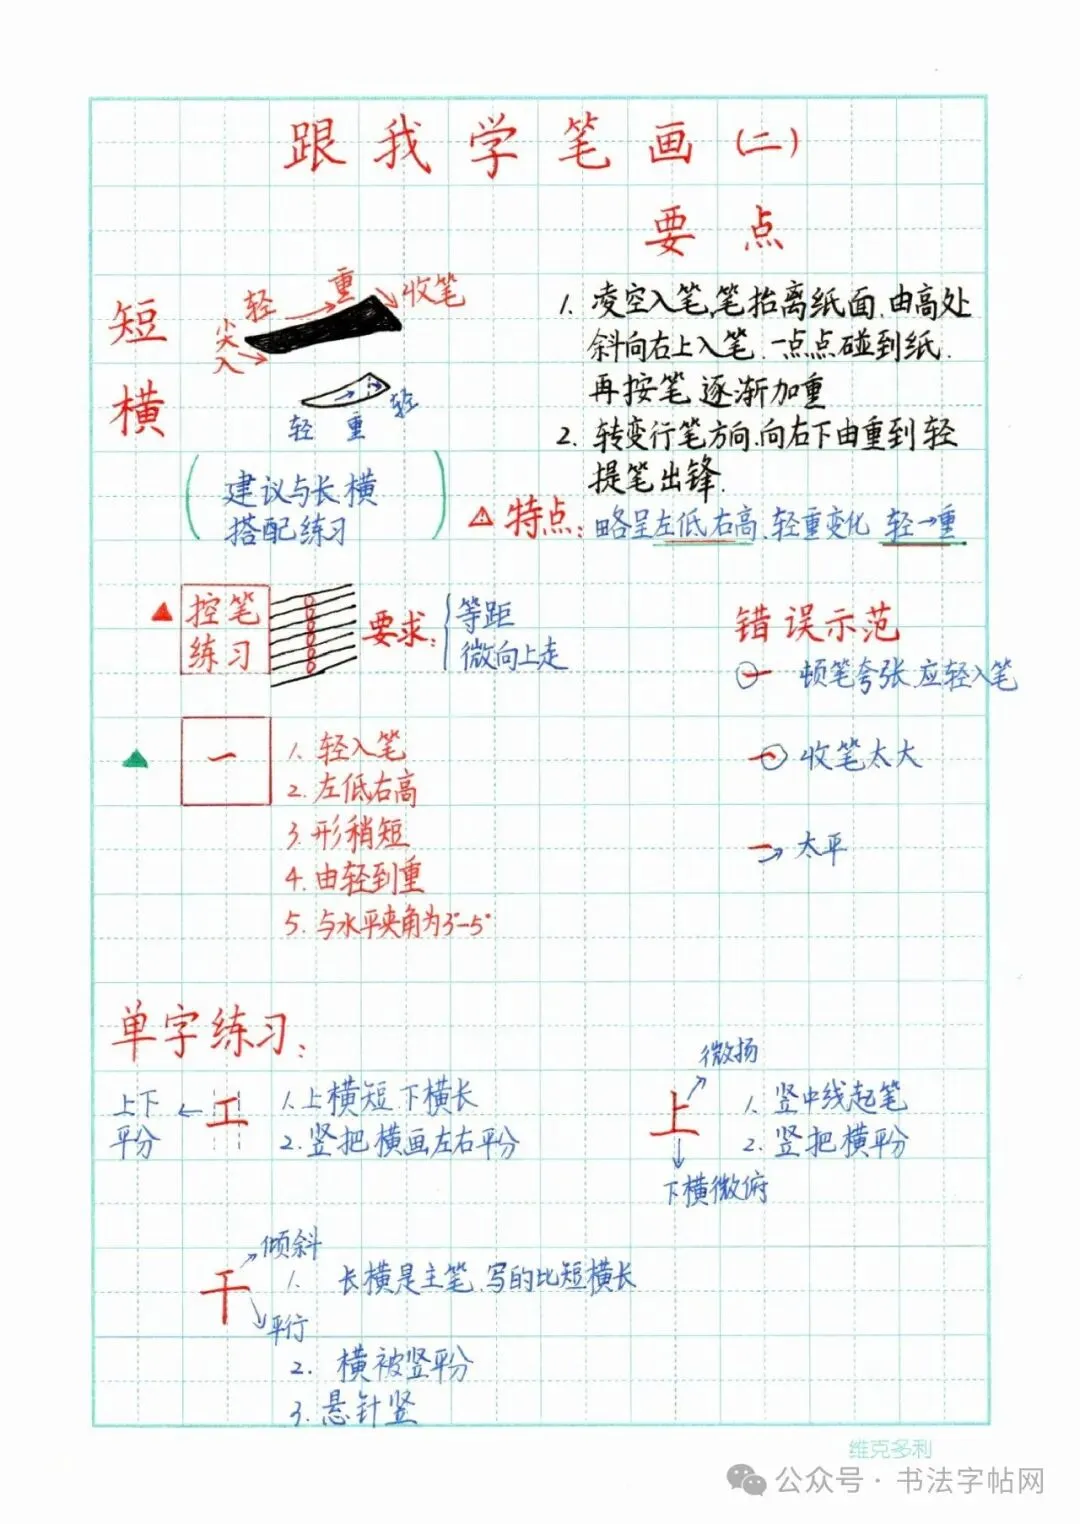 跟我学笔画(二)
要点
短横
尖入
轻
重
收笔
轻 重 轻
1. 凌空入笔,笔抬离纸面,由高处
斜向右上入笔,一点点碰到纸.
再按笔 逐渐加重
2. 转变行笔方向,向右下由重到轻
提笔出锋.
(建议与长横
搭配练习)
特点: 略呈左低右高、轻重变化 轻→重
控笔
练习
要求:
等距
微向上走
错误示范
顿笔夸张,应轻入笔
收笔太大
太平
一
1. 轻入笔
2. 左低右高
3. 形稍短
4. 由轻到重
5. 与水平夹角为3°-5°
单字练习:
上下
平分
工
1. 上横短 下横长
2. 竖把横画左右平分
微扬
上
下横微俯
1. 竖中线起笔
2. 竖把横平分
倾斜
干
平行
1. 长横是主笔,写的比短横长
2. 横被竖平分
3. 悬针竖
维克多利
公众号·书法字帖网